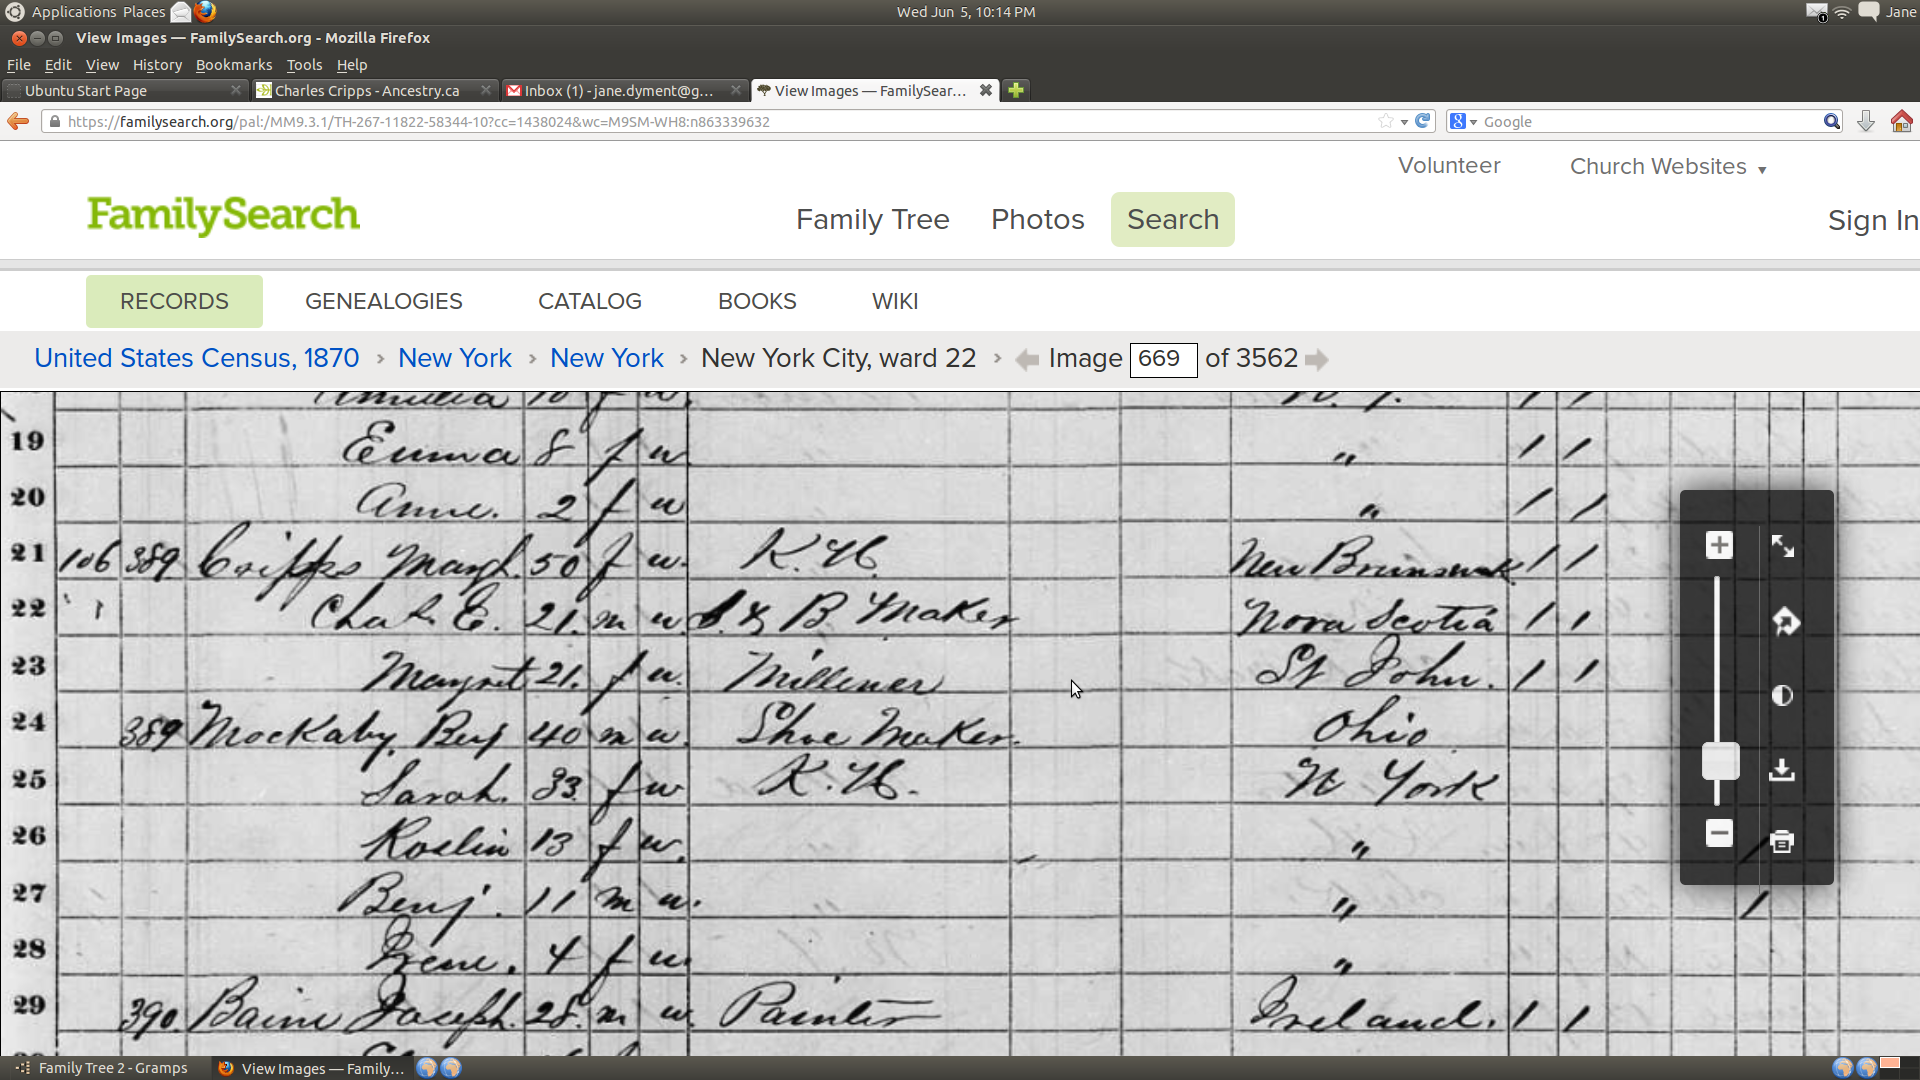 Applications Places Wed Jun 5, 10:14 PM 1 Jane
View Images — FamilySearch.org - Mozilla Firefox
File Edit View History Bookmarks Tools Help
Ubuntu Start Page Charles Cripps - Ancestry.ca Inbox (1) - jane.dyment@g... View Images — FamilySear...
https://familysearch.org/pal:/MM9.3.1/TH-267-11822-58344-10?cc=1438024&wc=M9SM-WH8:n863339632 Google
Volunteer Church Websites
FamilySearch Family Tree Photos Search Sign In
RECORDS GENEALOGIES CATALOG BOOKS WIKI
United States Census, 1870 › New York › New York › New York City, ward 22 › Image 669 of 3562
19 Emma 8 f w. " / /
20 Anne. 2 f w " / /
21 106 389 Cripps Margt. 50 f w. K. H. New Brunswick / /
22 Chas. E. 21. m w. & B Maker Nova Scotia / /
23 Margret 21. f w. Milliner St John. / /
24 389 Mockaby, Benj 40 m w. Shoe Maker. Ohio
25 Sarah. 33 f w. K. H. N York
26 Roslin 13 f w. " /
27 Benj. 11 m w. " /
28 Irene. 4 f w. "
29 390. Joseph. 28. m w. Painter Ireland. / /
Family Tree 2 - Gramps View Images — Family...